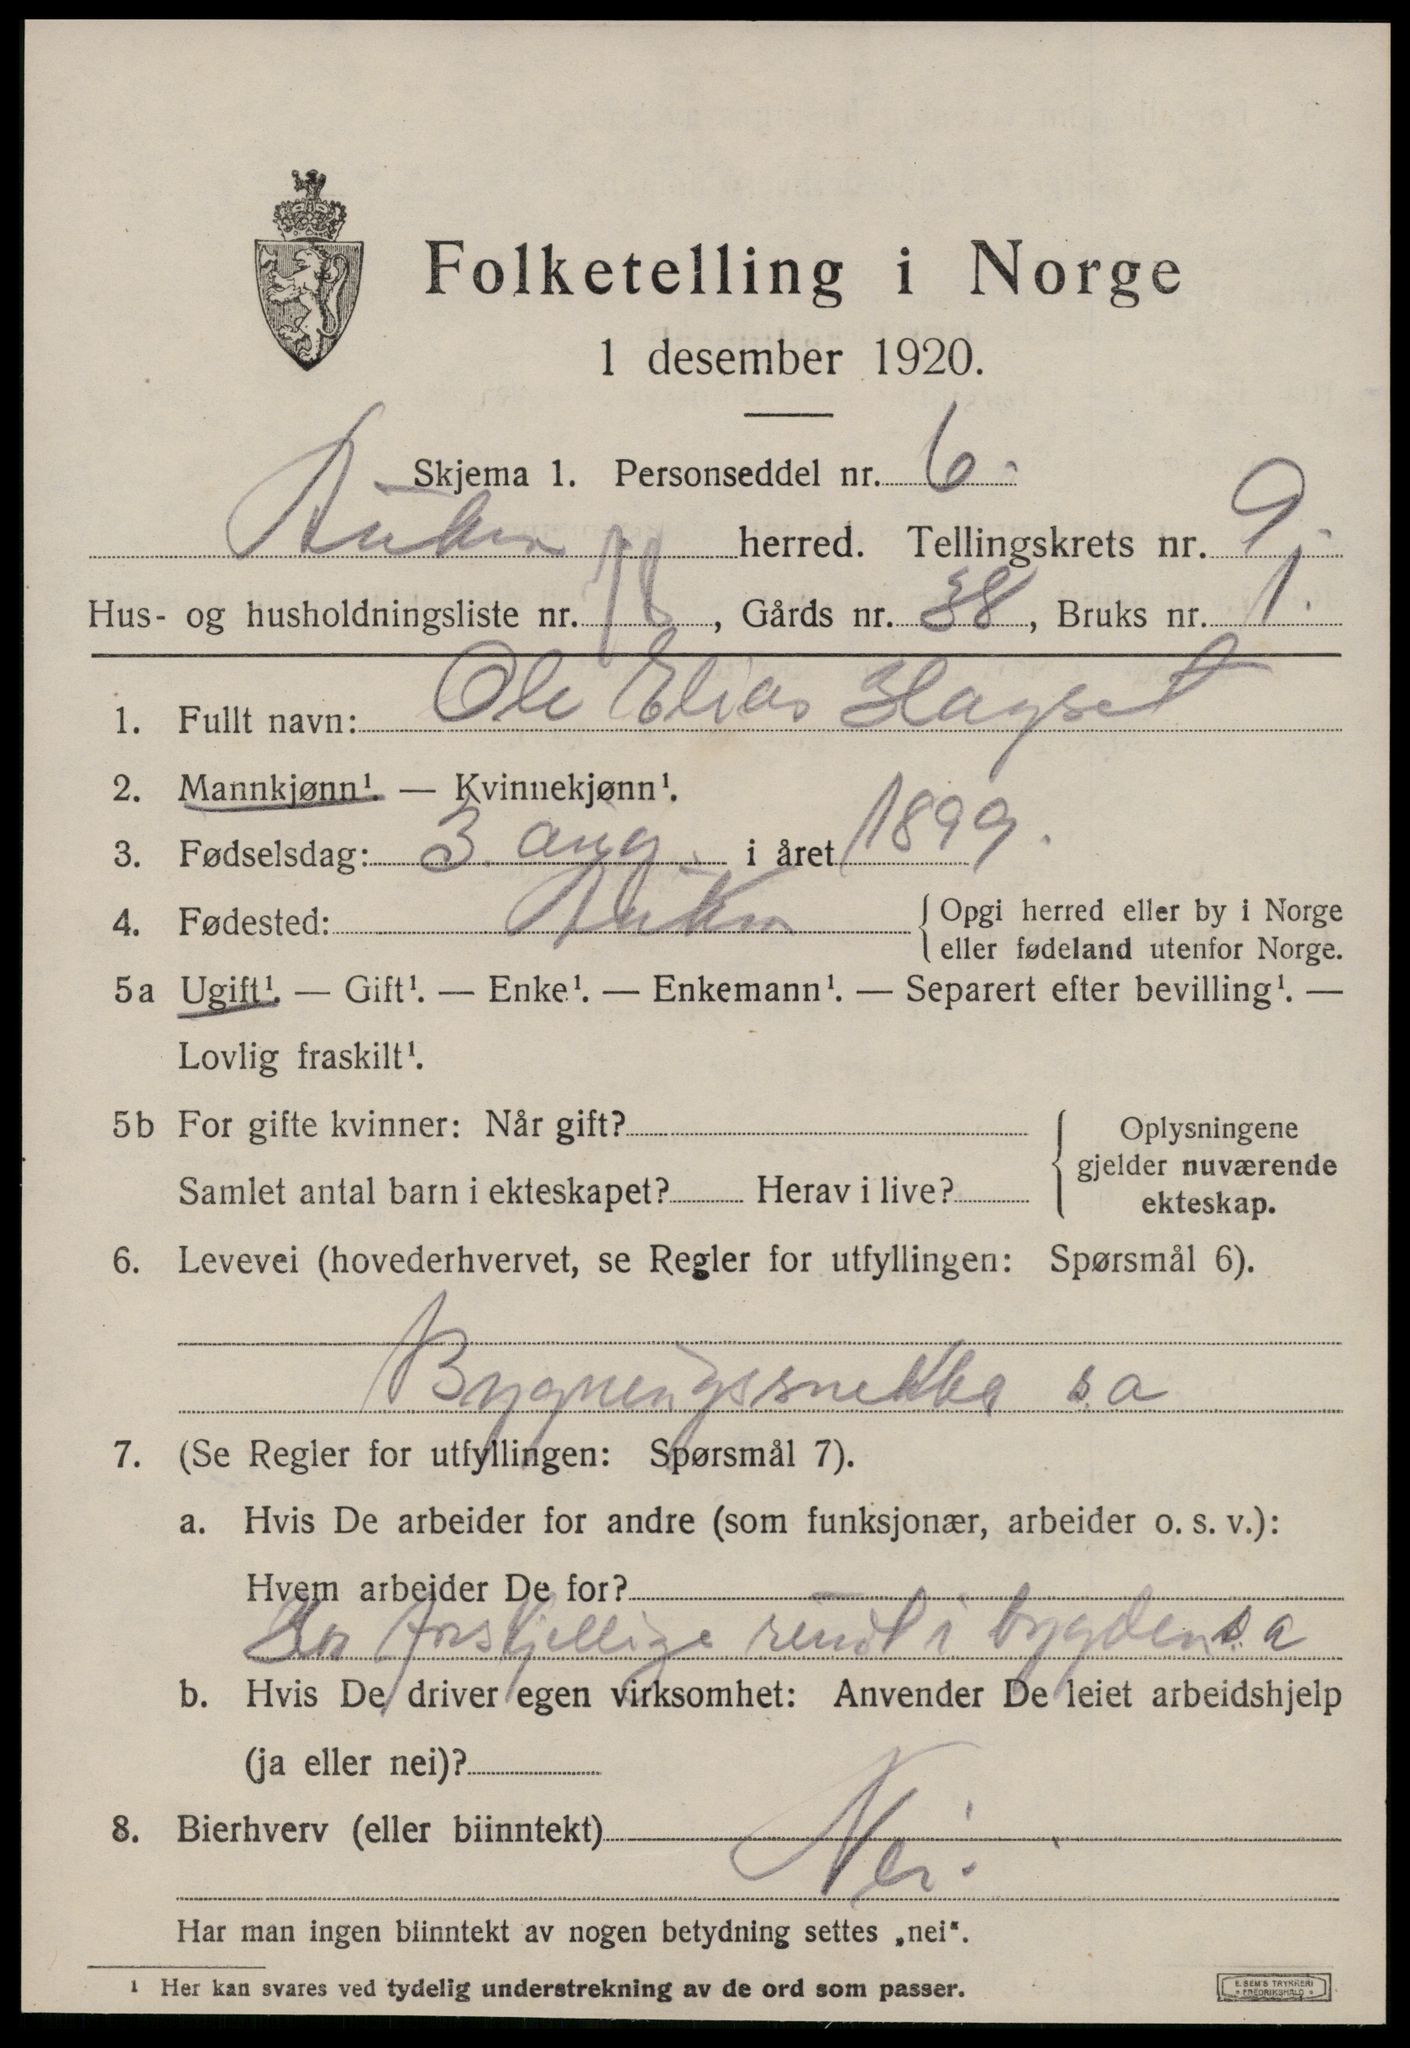 Folketelling i Norge
1 desember 1920.
Skjema 1. Personseddel nr. 6.
Aukra herred. Tellingskrets nr. 9.
Hus- og husholdningsliste nr. , Gårds nr. 38, Bruks nr. 1.
1. Fullt navn: Ole Elias Hagset
2. Mannkjønn¹. — Kvinnekjønn¹.
3. Fødselsdag: 3. aug. i året 1899.
4. Fødested: Aukra { Opgi herred eller by i Norge
eller fødeland utenfor Norge.
5a Ugift¹. — Gift¹. — Enke¹. — Enkemann¹. — Separert efter bevilling¹. —
Lovlig fraskilt¹.
5b For gifte kvinner: Når gift? { Oplysningene
gjelder nuværende
ekteskap.
Samlet antal barn i ekteskapet? Herav i live?
6. Levevei (hovederhvervet, se Regler for utfyllingen: Spørsmål 6).
Bygningssnekker s.a
7. (Se Regler for utfyllingen: Spørsmål 7).
a. Hvis De arbeider for andre (som funksjonær, arbeider o. s. v.):
Hvem arbeider De for?
forskjellige rundt i bygden s.a
b. Hvis De driver egen virksomhet: Anvender De leiet arbeidshjelp
(ja eller nei)?
8. Bierhverv (eller biinntekt)
Nei.
Har man ingen biinntekt av nogen betydning settes „nei“.
¹ Her kan svares ved tydelig understrekning av de ord som passer.
E. SEM'S TRYKKERI
* FREDRIKSHALD *